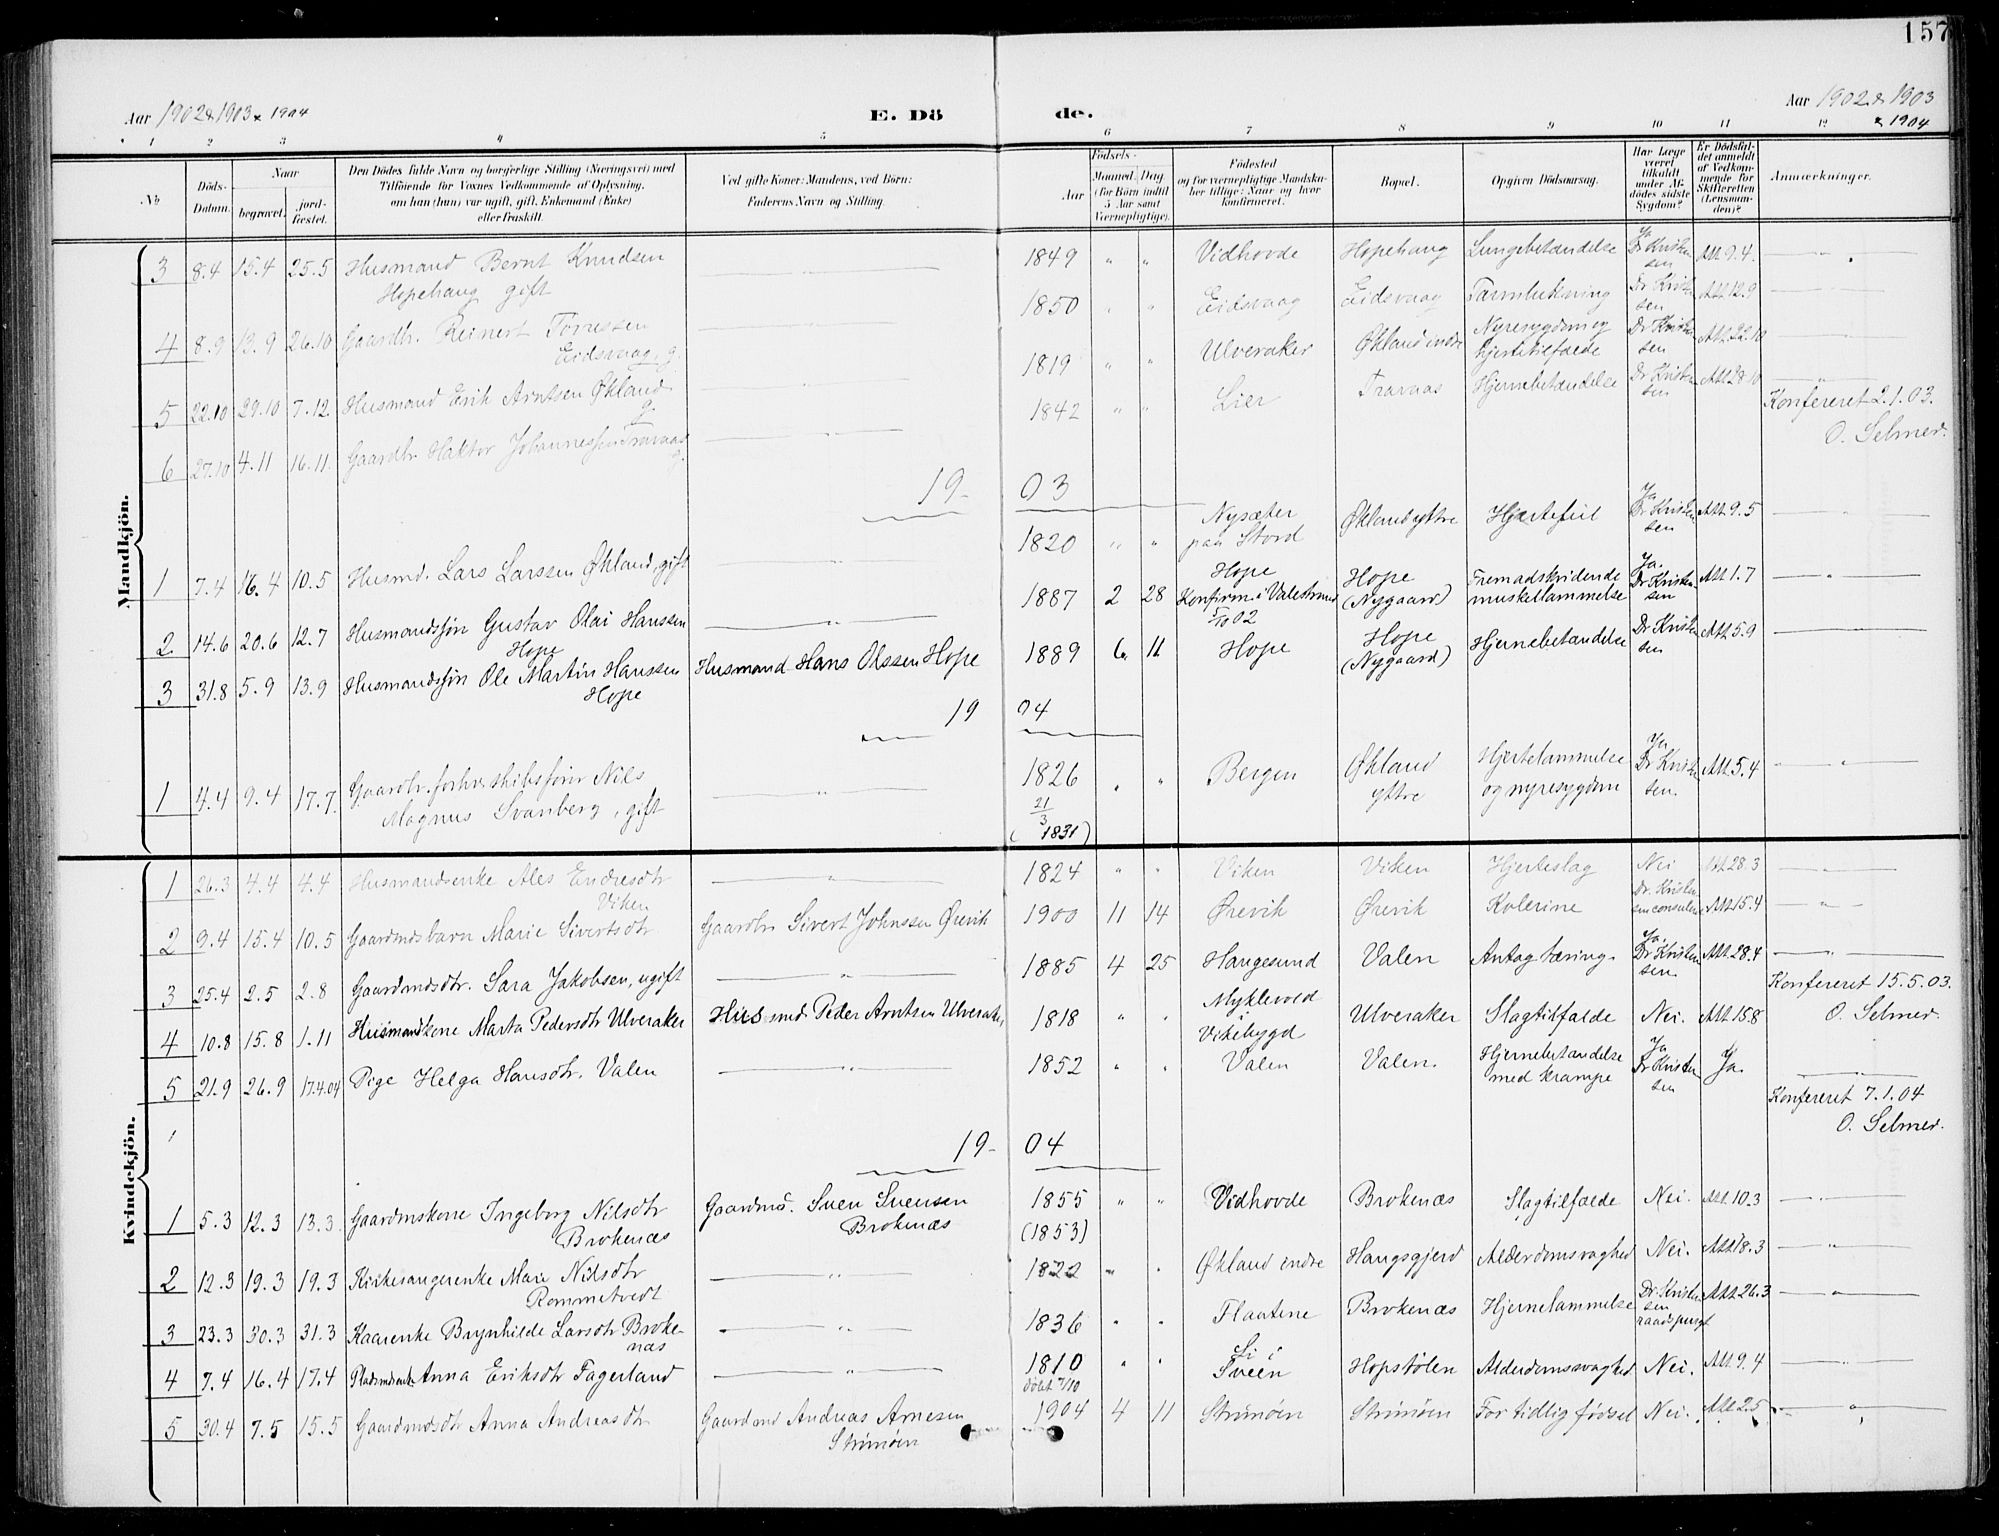 157
Aar 1902 & 1903 & 1904
E. Dö
de.
Aar 1902 & 1903
& 1904
1 2 3 4 5 6 7 8 9 10 11 12
№
Döds-Datum.
Naar
begravet.
jord-fæstet.
Den Dödes fulde Navn og borgerlige Stilling (Næringsvei) med
Tilföiende for Voxnes Vedkommende af Oplysning,
om han (hun) var ugift, gift, Enkemand (Enke)
eller fraskilt.
Ved gifte Koner: Mandens, ved Börn:
Faderens Navn og Stilling.
Födsels-
Aar
Maaned. Dag.
(for Börn indtil
5 Aar samt
Værnepligtige).
Födested
og for værnepligtige Mandska-
ber tillige: Naar og hvor
konfirmeret.
Bopæl.
Opgiven Dödsaarsag.
Har Læge
været
tilkaldt
under Af-
dödes sidste
Sygdom?
Er Dödsfal-
det anmeldt
af Vedkom-
mende for
Skifteretten
(Lensman-
den)?
Anmærkninger.
Mandkjön.
3 8.4 15.4 25.5 Husmand Bernt Knudsen 1849 " " Vidhovde Hopehaug Lungebetændelse Ja Dr Kristensen Att 9.4.
Hopehaug gift
4 8.9 13.9 26.10 Gaardbr. Reinert Torressen 1850 " " Eidsvaag Eidsvaag Dr Kristensen Att 12.9
Eidsvaag, g.
5 22.10 29.10 7.12. Husmand Erik Arntsen Økland 1819 " " Ulveraker Økland indre Nyresygdom og hjertetilfælde Dr Kristensen Att 22.10
g.
6 27.10 4.11 16.11. Gaardbr. Haktor Johannessen Travaas 1842 " " Lier Travaas Hjernebetændelse Dr Kristensen Att 28.10
g.
Konfereret 2.1.03.
O. Selmer.
19- 03
1 7.4 16.4 10.5 Husmd. Lars Larssen Økland, gift 1820 " " Nysæter paa Stord Økland yttre Hjertefeil Ja Dr Kristensen Att 9.5
2 14.6 20.6 12.7 Husmandssøn Gustav Olai Hanssen 1887 2 28 Hope Konfirm. i Valestrand 5/10 02 Hope (Nygaard) Fremadskridende muskellammelse Ja. Dr Kristensen Att 1.7
Hope
3 31.8 5.9 13.9 Husmandssøn Ole Martin Hanssen Husmand Hans Olssen Hope 1889 6 11 Hope Hope (Nygaard) Hjernebetændelse Dr Kristensen Att 5.9
Hope
19 04
1 4.4 9.4 17.7. Gaardbr. forhv. skibsfører Nils 1826 " " Bergen Økland yttre Hjertelammelse og nyresygdom Ja Dr Kristensen. Att 5.4
Magnus Svanberg, gift
(21/3 1831)
Kvindekjön.
1 26.3 4.4 4.4 Husmandsenke Ales Endresdtr 1824 " " Viken Viken Hjerteslag Nei Att 28.3
Viken
2 9.4 15.4 10.5 Gaardmdsbarn Marie Sivertsdtr Gaardbr Sivert Johnssen Ørevik 1900 11 14 Ørevik Ørevik Kolerine Dr. Kristensen Att 15.4
3 25.4 2.5 2.8 Gaardmdsdtr. Sara Jakobsen, ugift 1885 4 25 Haugesund Valen Antag tæring. Ja. Dr Kristensen. Att 28.4
Konfereret 15.5.03.
O. Selmer.
4 10.8 15.8 1.11 Husmandskone Marta Pedersdtr Ulveraker Husmd. Peder Arntsen Ulveraker 1818 " " Myklevold i Vikebygd Ulveraker Slagtilfælde Nei. Att 15.8
5 21.9 26.9 17.4.04 Pige Helga Hansdtr. Valen 1852 " " Valen Valen. Hjernebetændelse med krampe Ja Dr Kristensen Ja.
Konfereret 7.1.04
O. Selmer.
19- 04
1 5.3 12.3 13.3 Gaardmskone Ingeborg Nilsdtr Gaardmd. Sven Svensen 1855 " " Vidhovde Brokenæs Slagtilfælde Nei. Att 10.3
Brokenæs Brokenæs (1853)
2 12.3 19.3 19.3 Kirkesangerenke Mari Nilsdtr 1822 " " Økland indre Haugsgjerd Alderdomsvaghed Nei. Att 18.3
Rommetvedt
3 23.3 30.3 31.3 Kaarenke Brynhilde Larsdtr Broke- 1836 " " Flaatene Brokenæs Hjernelammelse Dr. Kristensen raadspurgt Att 26.3
næs
4 7.4 16.4 17.4 Anna Eriksdtr Fagerland 1810 " " Li i Sveen Hopstølen Alderdomsvaghed Nei. Att 9.4
døbt 7/10
5 30.4 7.5 15.5 Gaardmdsdtr Anna Andreasdtr Gaardmd Andreas Arnesen 1904 4 11 Strimøen Strimøen For tidlig fødsel Nei. Att 2.5
Strimøen